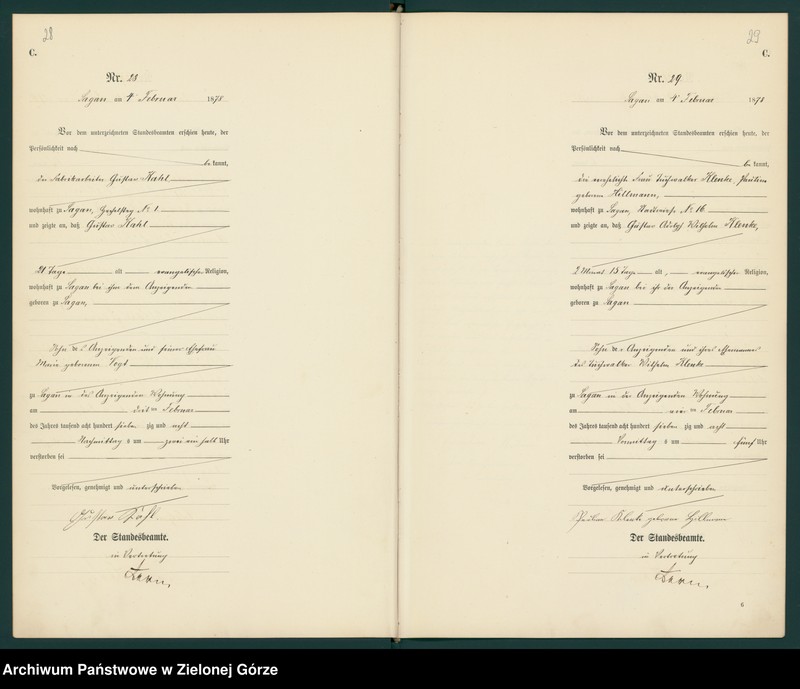 28
C.
Nr. 28
Sagan am 4t Februar 1878
Vor dem unterzeichneten Standesbeamten erschien heute, der
Persönlichkeit nach
be kannt,
der Fabrikarbeiter Gustav Kahl
wohnhaft zu Sagan, No 1
und zeigte an, daß Gustav Kahl
21 Tage alt evangelischer Religion,
wohnhaft zu Sagan bei ihm dem Anzeigenden
geboren zu Sagan,
Sohn des Anzeigenden und seiner Ehefrau
Marie geborenen Vogt
zu Sagan in des Anzeigenden Wohnung
am drei ten Februar
des Jahres tausend acht hundert sieben zig und acht
Nachmittag s um zwei ein halb Uhr
verstorben sei
Vorgelesen, genehmigt und unterschrieben
Gustav Kahl.
Der Standesbeamte.
in Vertretung
29
C.
Nr. 29
Sagan am 4t Februar 1878
Vor dem unterzeichneten Standesbeamten erschien heute, der
Persönlichkeit nach
be kannt,
die verehelichte Frau Tuchwalker Klenke, Pauline
geborene Hillmann,
wohnhaft zu Sagan, No 16
und zeigte an, daß Gustav Adolph Wilhelm Klenke,
2 Monat 15 Tage alt, evangelischer Religion,
wohnhaft zu Sagan bei ihr der Anzeigenden
geboren zu Sagan
Sohn der Anzeigenden und ihres Ehemannes
des Tuchwalker Wilhelm Klenke
zu Sagan in der Anzeigenden Wohnung
am vier ten Februar
des Jahres tausend acht hundert sieben zig und acht
Vormittag s um fünf Uhr
verstorben sei
Vorgelesen, genehmigt und unterschrieben
Pauline Klenke geborene Hillmann
Der Standesbeamte.
in Vertretung
6
Archiwum Państwowe w Zielonej Górze